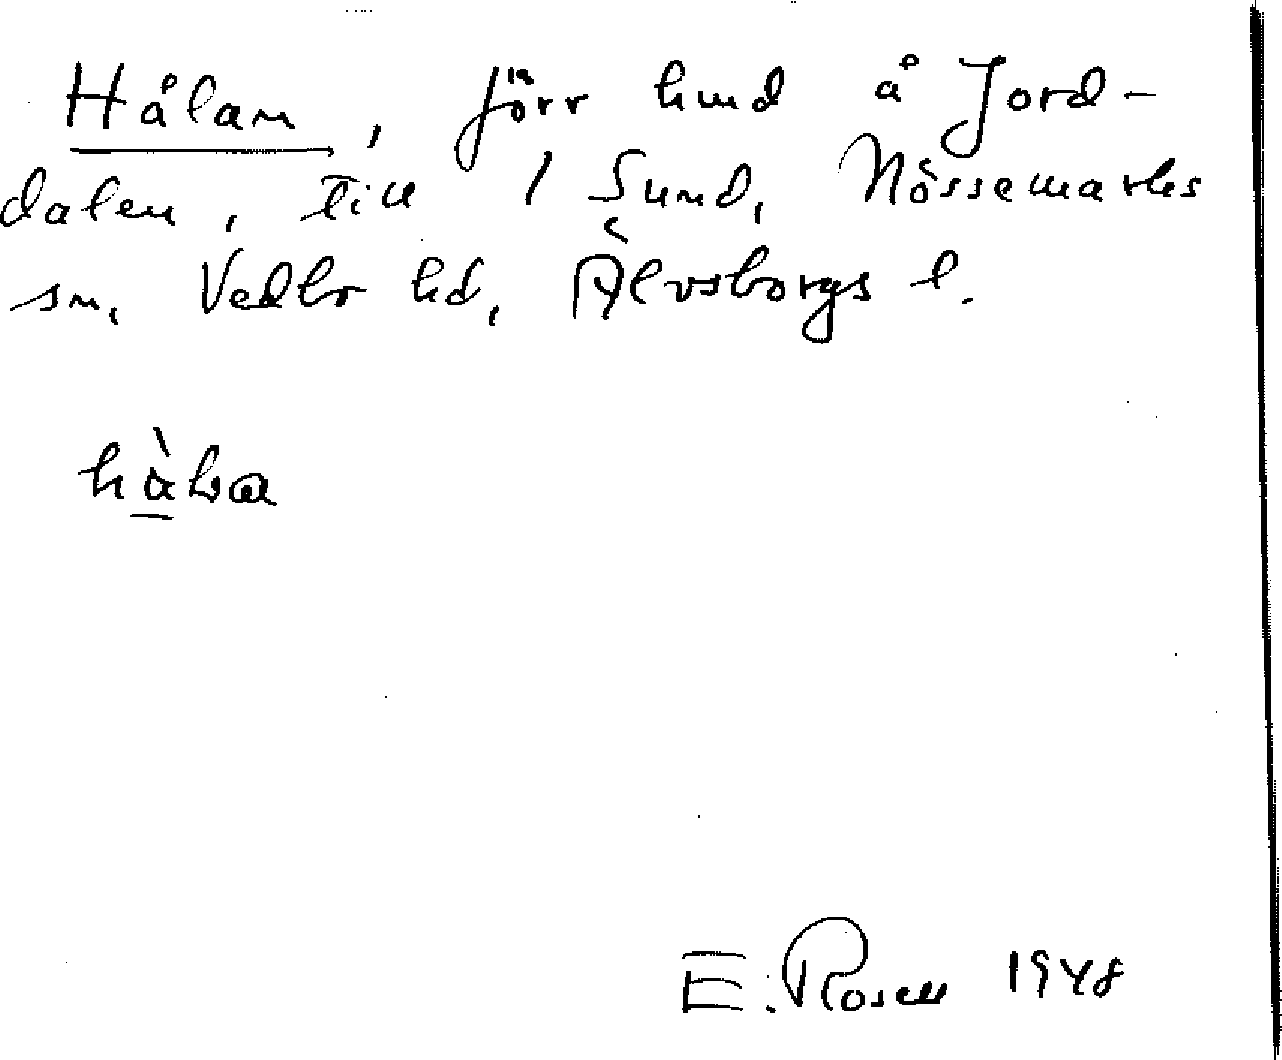 Hålan, förr lmd å Jord-
dalen, till 1 Sund, Nössemarks
sn, Vedbo hd, Älvsborgs l.
E. Rosell 1948